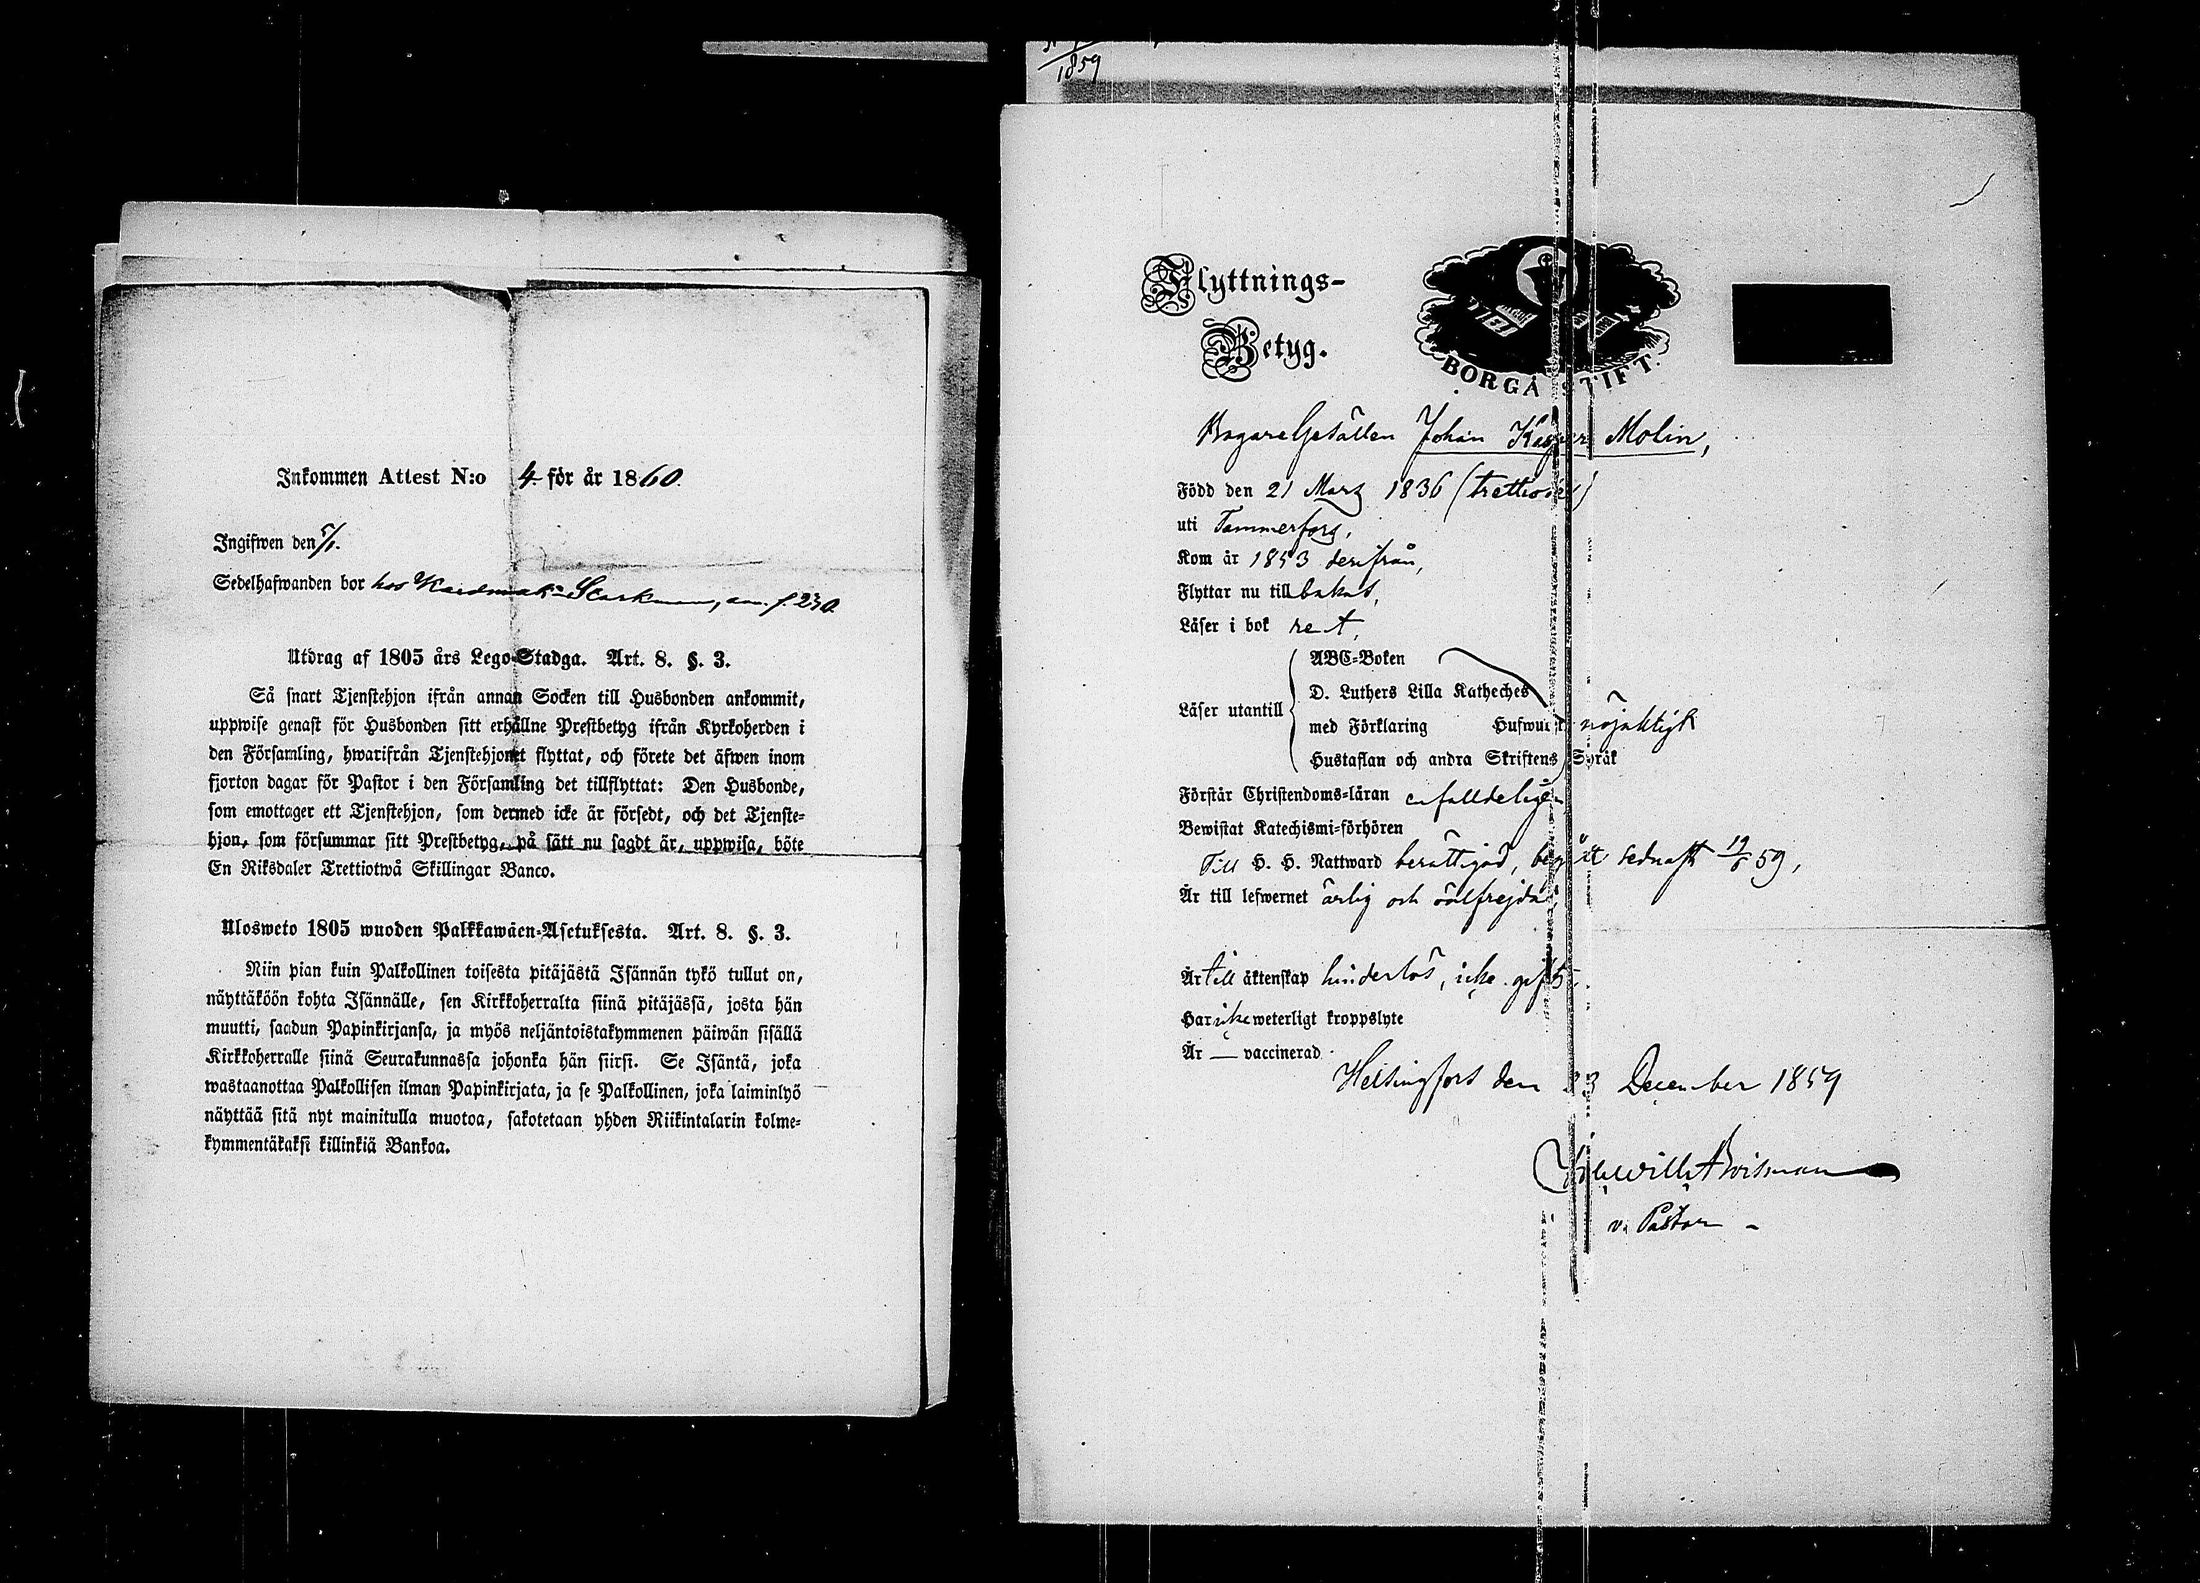 Inkommen Attest N:o 4. för år 1860.
Ingifwen den 5/1.
Sedelhafwanden bor hos Starkman, f. 230.
Utdrag af 1805 års Lego-Stadga. Art. 8. §. 3.
Så snart Tjenstehjon ifrån annan Socken till Husbonden ankommit,
uppwise genast för Husbonden sitt erhållne Prestbetyg ifrån Kyrkoherden i
den Församling, hwarifrån Tjenstehjonet flyttat, och förete det äfwen inom
fjorton dagar för Pastor i den Församling det tillflyttat: Den Husbonde,
som emottager ett Tjenstehjon, som dermed icke är försedt, och det Tjenste-
hjon, som försummar sitt Prestbetyg, på sätt nu sagdt är, uppwisa, böte
En Riksdaler Trettiotwå Skillingar Banco.
Ulosweto 1805 wuoden Palkkawäen-Asetuksesta. Art. 8. §. 3.
Niin pian kuin Palkollinen toisesta pitäjästä Isännän tykö tullut on,
näyttäköön kohta Isännälle, sen Kirkkoherralta siinä pitäjässä, josta hän
muutti, saadun Papinkirjansa, ja myös neljäntoistakymmenen päiwän sisällä
Kirkkoherralle siinä Seurakunnassa johonka hän siirsi. Se Isäntä, joka
wastaanottaa Palkollisen ilman Papinkirjata, ja se Palkollinen, joka laiminlyö
näyttää sitä nyt mainitulla muotoa, sakotetaan yhden Riikintalarin kolme-
kymmentäkaksi killinkiä Bankoa.
1859
Flyttnings-
Betyg.
BORGÅ STIFT.
Bagare Gesällen Johan Kasper Molin,
Född den 21 Mars 1836 (trettiosex)
uti Tammerfors,
Kom år 1853 derifrån,
Flyttar nu tillbakas,
Läser i bok rent,
Läser utantill
ABC-Boken
D. Luthers Lilla Katheches
med Förklaring Hufwudst. nöjaktigt
Hustaflan och andra Skriftens Språk
Förstår Christendoms-läran enfalldeligen
Bewistat Katechismi-förhören
Till H. H. Nattward berättigad, begått sednast 19/6 59,
Är till lefwernet ärlig och välfrejdad,
Är till äktenskap hinderlös, icke gift.
Har icke weterligt kroppslyte
Är — vaccinerad
Helsingfors den 23 December 1859
v. Pastor